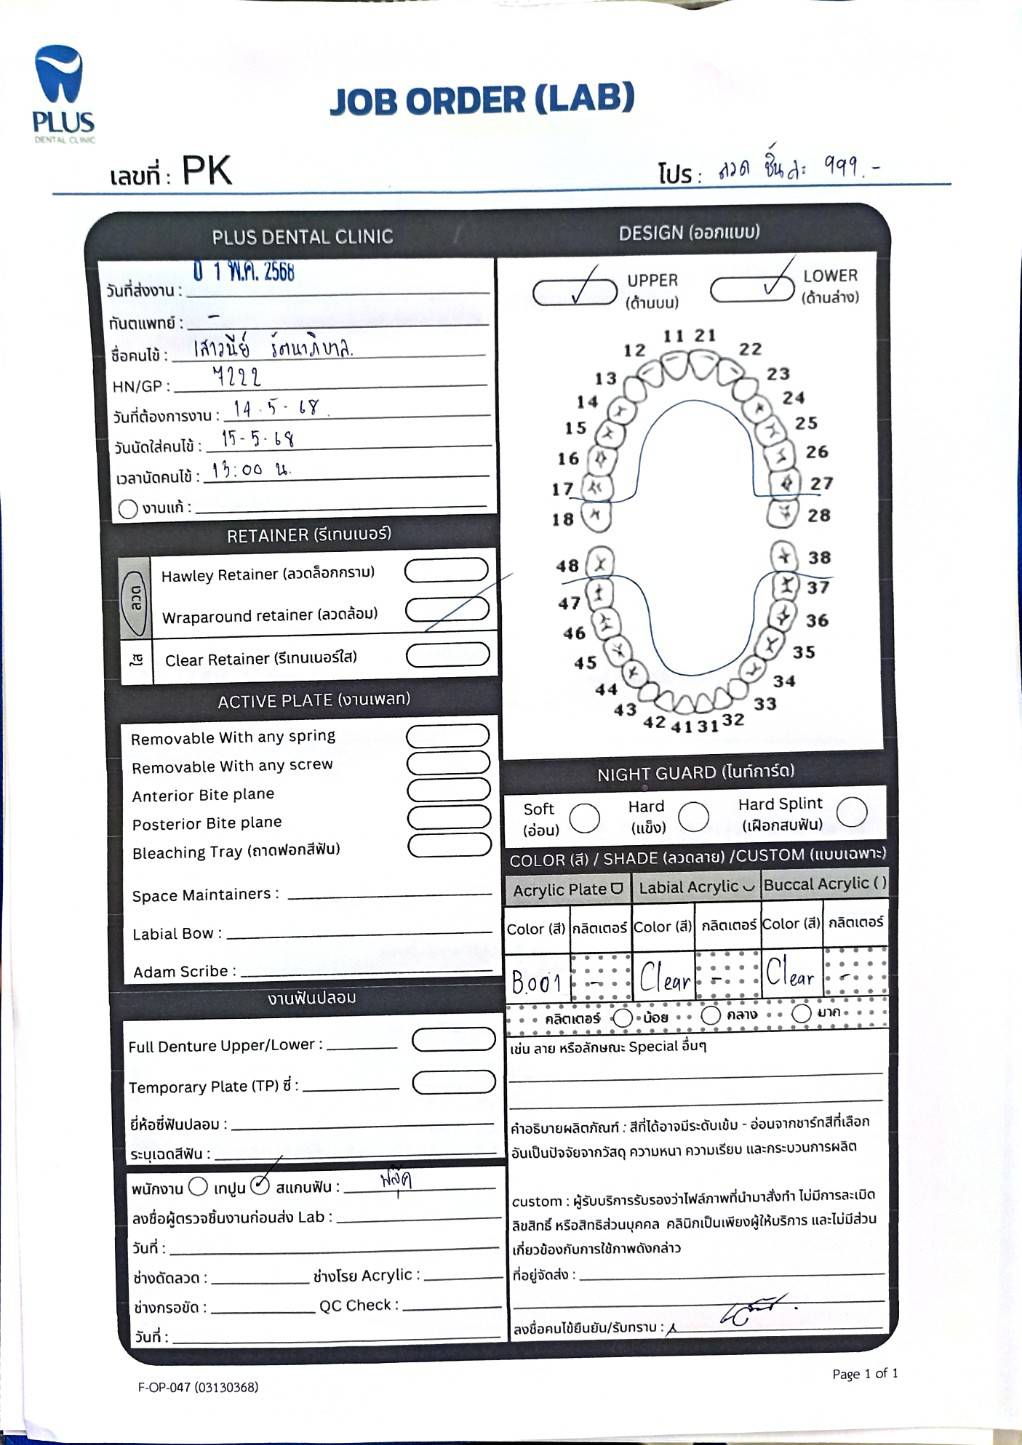 PLUS
DENTAL CLINIC
JOB ORDER (LAB)
เลขที่ : PK
โปร : ลวด ชิ้นละ 999.-
PLUS DENTAL CLINIC
วันที่ส่งงาน : 1 พ.ค. 2568
ทันตแพทย์ : -
ชื่อคนไข้ : เสาวนีย์ รัตนาภิบาล.
HN/GP : 7222
วันที่ต้องการงาน : 14.5-68
วันนัดใส่คนไข้ : 15-5-68
เวลานัดคนไข้ : 13:00 น.
งานแก้ :
RETAINER (รีเทนเนอร์)
ลวด
Hawley Retainer (ลวดล็อกกราม)
Wraparound retainer (ลวดล้อม)
ใส
Clear Retainer (รีเทนเนอร์ใส)
ACTIVE PLATE (งานเพลท)
Removable With any spring
Removable With any screw
Anterior Bite plane
Posterior Bite plane
Bleaching Tray (ถาดฟอกสีฟัน)
Space Maintainers :
Labial Bow :
Adam Scribe :
งานฟันปลอม
Full Denture Upper/Lower :
Temporary Plate (TP) ซี่ :
ยี่ห้อซี่ฟันปลอม :
ระบุเฉดสีฟัน :
พนักงาน เทปูน สแกนฟัน :
ลงชื่อผู้ตรวจชิ้นงานก่อนส่ง Lab :
วันที่ :
ช่างดัดลวด : ช่างโรย Acrylic :
ช่างกรอขัด : QC Check :
วันที่ :
DESIGN (ออกแบบ)
UPPER
(ด้านบน)
LOWER
(ด้านล่าง)
11 21
12 22
13 23
14 24
15 25
16 26
17 27
18 28
48 38
47 37
46 36
45 35
44 34
43 33
42 41 31 32
NIGHT GUARD (ไนท์การ์ด)
Soft
(อ่อน)
Hard
(แข็ง)
Hard Splint
(เฝือกสบฟัน)
COLOR (สี) / SHADE (ลวดลาย) /CUSTOM (แบบเฉพาะ)
Acrylic Plate Labial Acrylic Buccal Acrylic ( )
Color (สี) กลิตเตอร์ Color (สี) กลิตเตอร์ Color (สี) กลิตเตอร์
B.001 - Clear - Clear -
กลิตเตอร์ น้อย กลาง มาก
เช่น ลาย หรือลักษณะ Special อื่นๆ
คำอธิบายผลิตภัณฑ์ : สีที่ได้อาจมีระดับเข้ม - อ่อนจากชาร์ทสีที่เลือก
อันเป็นปัจจัยจากวัสดุ ความหนา ความเรียบ และกระบวนการผลิต
custom : ผู้รับบริการรับรองว่าไฟล์ภาพที่นำมาสั่งทำ ไม่มีการละเมิด
ลิขสิทธิ์ หรือสิทธิส่วนบุคคล คลินิกเป็นเพียงผู้ให้บริการ และไม่มีส่วน
เกี่ยวข้องกับการใช้ภาพดังกล่าว
ที่อยู่จัดส่ง :
ลงชื่อคนไข้ยืนยัน/รับทราบ :
F-OP-047 (03130368)
Page 1 of 1